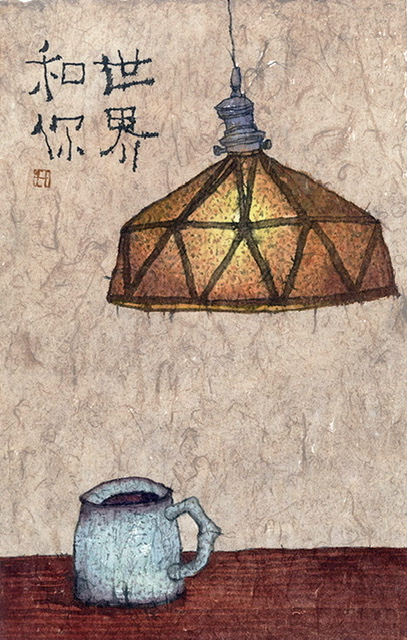 世界
和你